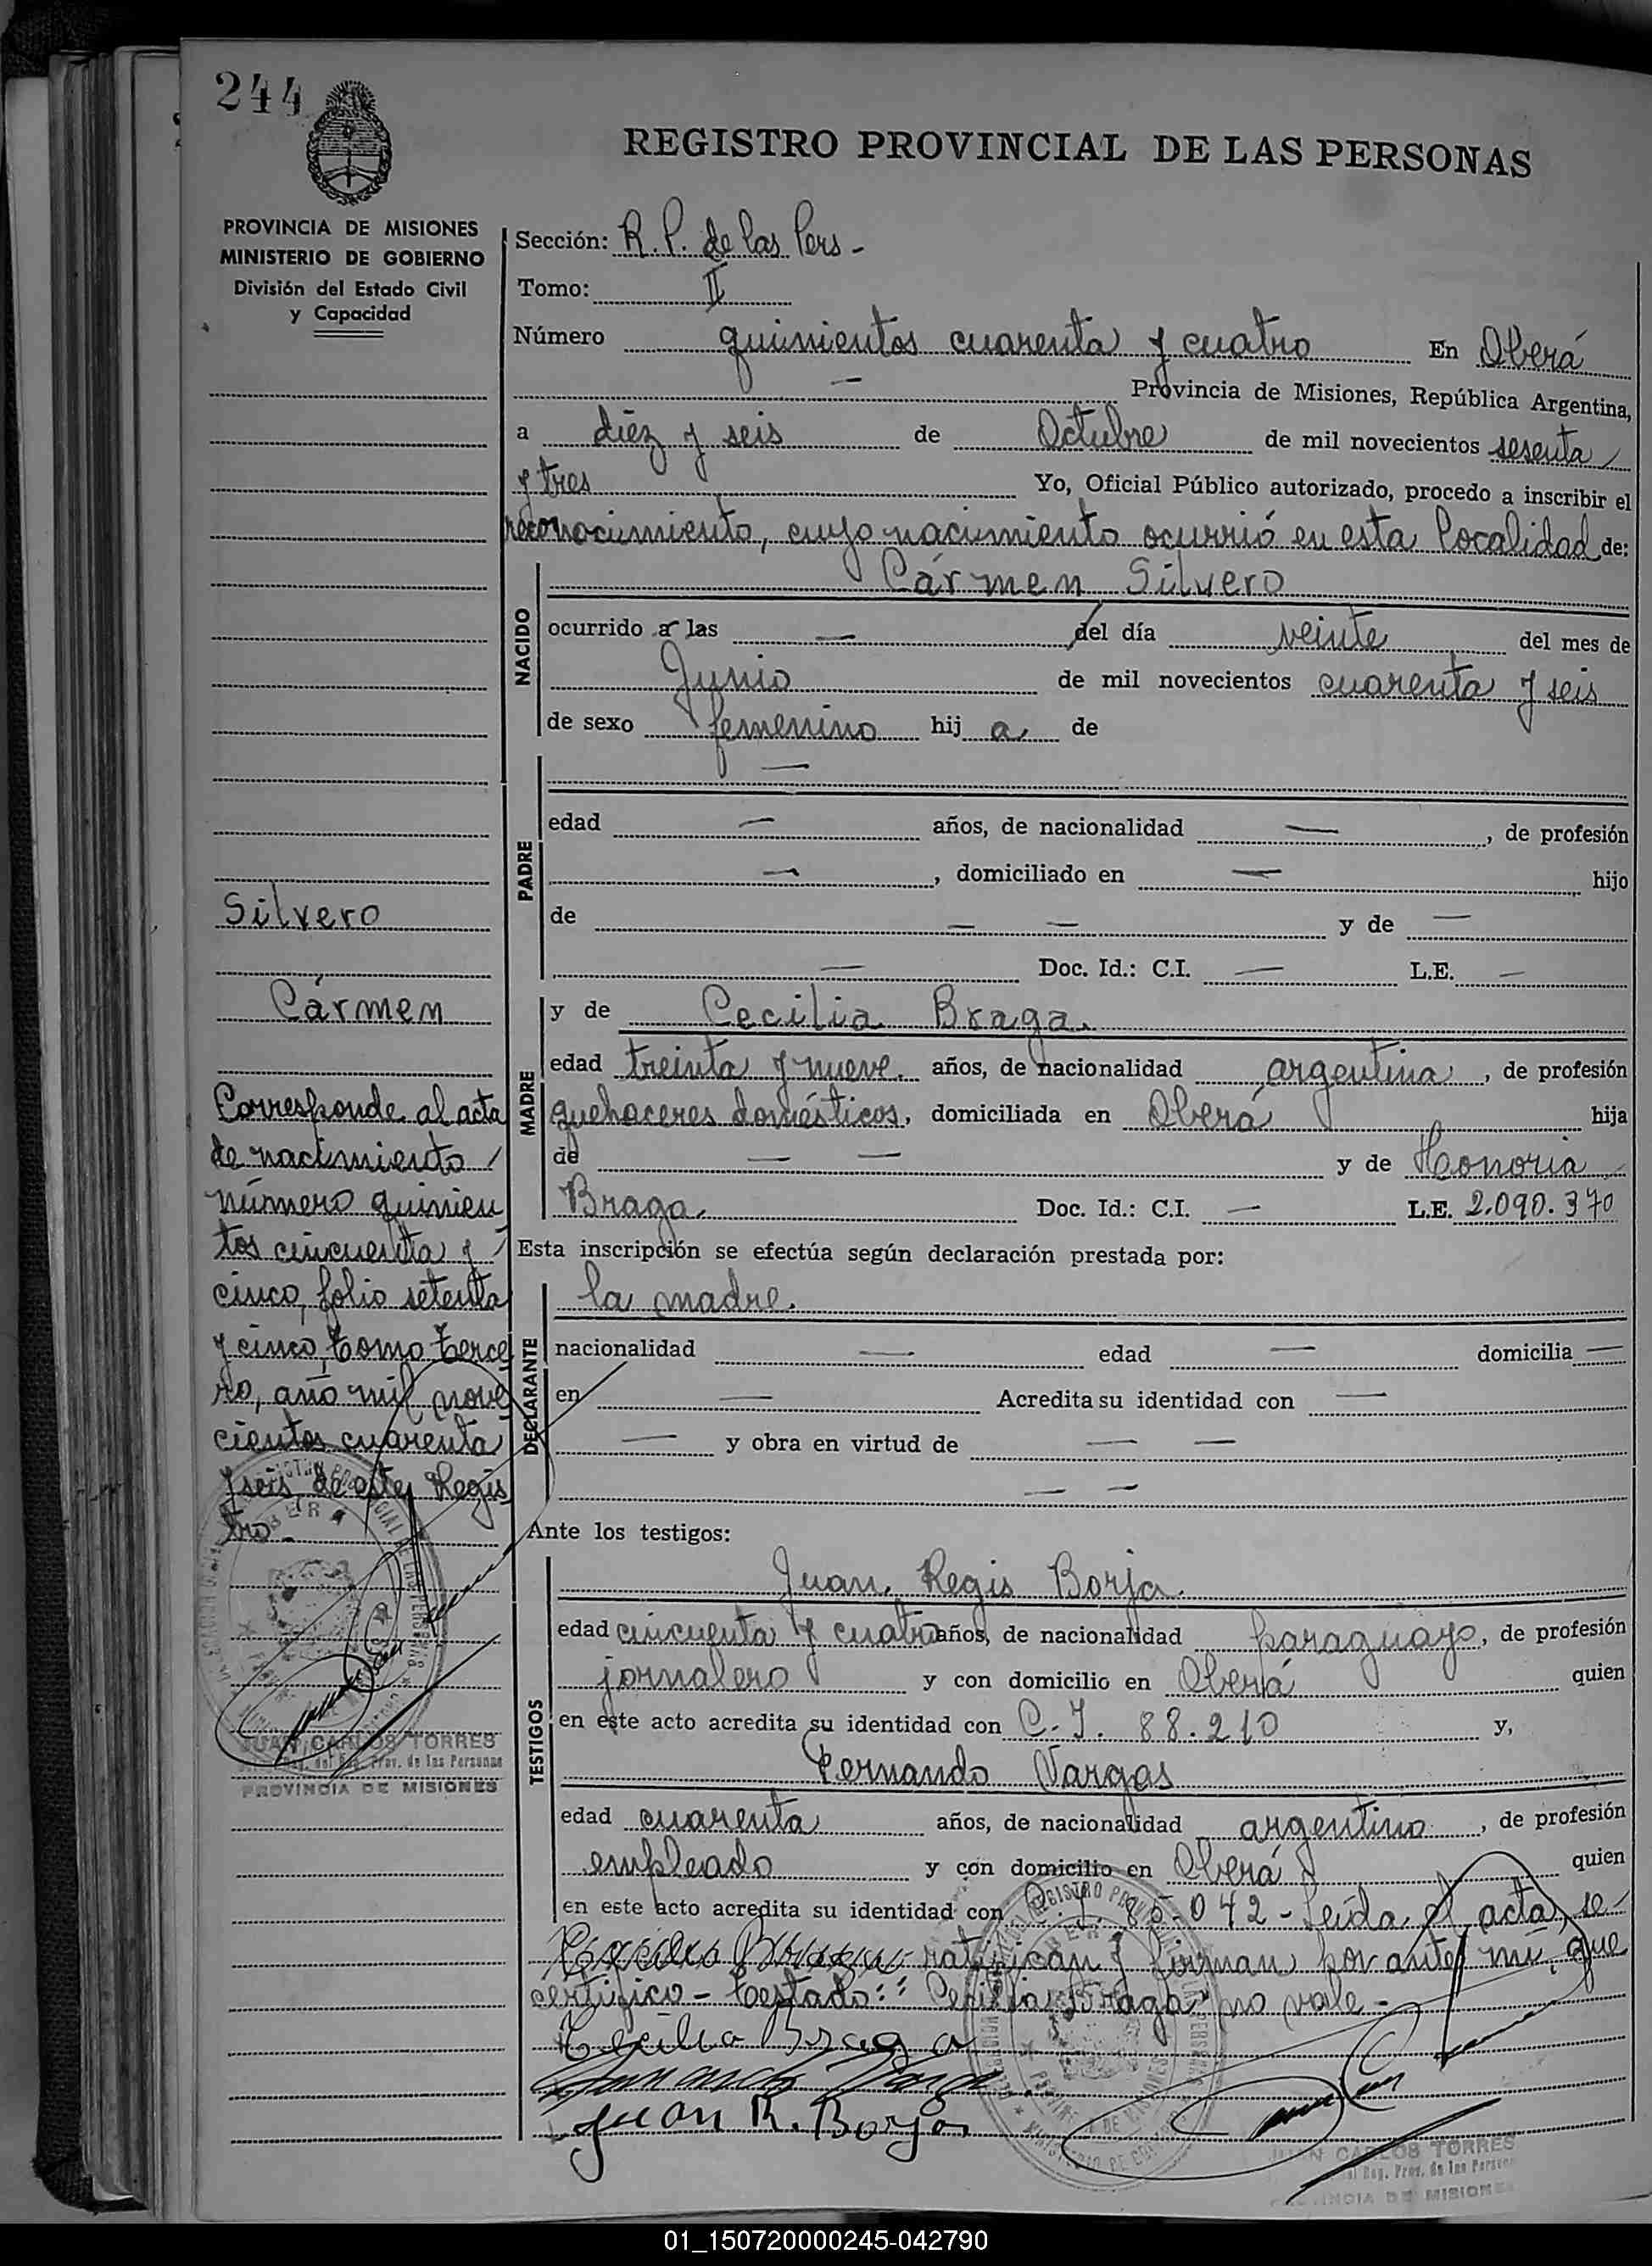 244
REGISTRO PROVINCIAL DE LAS PERSONAS
PROVINCIA DE MISIONES
MINISTERIO DE GOBIERNO
División del Estado Civil
y Capacidad
Sección: R. P. de las Pers -
Tomo: II
Número quinientos cuarenta y cuatro En Oberá
— Provincia de Misiones, República Argentina,
a diez y seis de Octubre de mil novecientos sesenta
y tres Yo, Oficial Público autorizado, procedo a inscribir el
reconocimiento, cuyo nacimiento ocurrió en esta localidad de:
NACIDO
Cármen Silvero
ocurrido a las — del día veinte del mes de
Junio de mil novecientos cuarenta y seis
de sexo femenino hij a de
PADRE
—
edad — años, de nacionalidad —, de profesión
—, domiciliado en — hijo
de — — y de —
— Doc. Id.: C.I. — L.E. —
MADRE
y de Cecilia Braga.
edad treinta y nueve. años, de nacionalidad argentina, de profesión
quehaceres domésticos, domiciliada en Oberá hija
de — — y de Honoria
Braga. Doc. Id.: C.I. — L.E. 2.090.370
Esta inscripción se efectúa según declaración prestada por:
DECLARANTE
la madre.
nacionalidad — edad — domicilia —
en — Acredita su identidad con —
— y obra en virtud de — —
— —
Ante los testigos:
TESTIGOS
Juan Regis Borja.
edad cincuenta y cuatro años, de nacionalidad paraguayo, de profesión
jornalero y con domicilio en Oberá quien
en este acto acredita su identidad con C. I. 88.210 y,
Fernando Vargas
edad cuarenta años, de nacionalidad argentino, de profesión
empleado y con domicilio en Oberá quien
en este acto acredita su identidad con C. I. 85.042 - Leída el acta, se
Cecilia Braga ratifican y firman por ante mi, que
certifico - Testado: "Cecilia Braga" no vale -
Cecilia Braga
Fernando Vargas
Juan R. Borja
Silvero
Cármen
Corresponde al acta
de nacimiento
número quinien
tos cincuenta y
cinco, folio setenta
y cinco, tomo terce
ro, año mil nove
cientos cuarenta
y seis de este Regis
tro -
JUAN CARLOS TORRES
Prov. de las Personas
PROVINCIA DE MISIONES
JUAN CARLOS TORRES
Reg. Prov. de las Person
PROVINCIA DE MISIONES
01_150720000245-042790